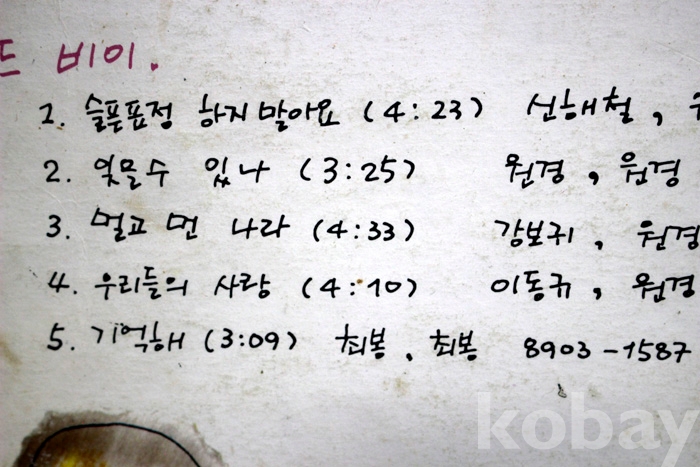 드 비이.
1. 슬픈표정 하지말아요 (4:23) 신해철,
2. 잊을수 있나 (3:25) 원경, 원경
3. 멀고 먼 나라 (4:33) 강보귀, 원경
4. 우리들의 사랑 (4:10) 이동규, 원경
5. 기억해 (3:09) 최봉, 최봉 8903-1587
kobay